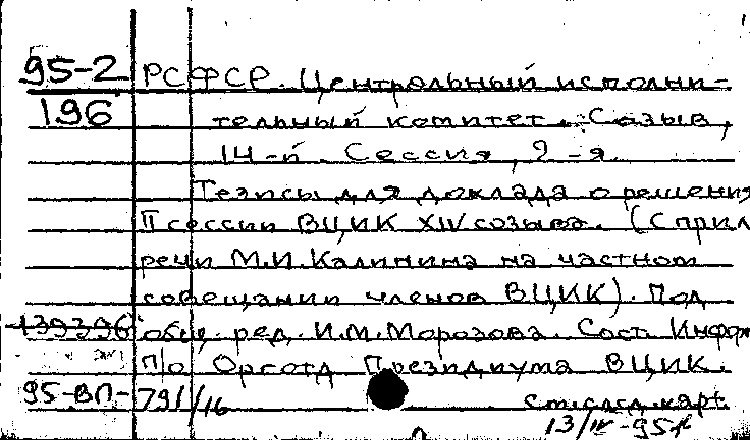 95-2 РСФСР. Центральный исполни-
196 тельный комитет. Созыв,
14-й. Сессия, 2-я.
Тезисы для доклада о решения
II сессии ВЦИК XIV созыва. (С прил
речи М.И. Калинина на частном
совещании членов ВЦИК). Под
139396 общ. ред. И.М. Морозова. Сост. Инфор
п/о Орготд Президиума ВЦИК.
95-ВП-791/16 см. след. карт.
13/IV-95г